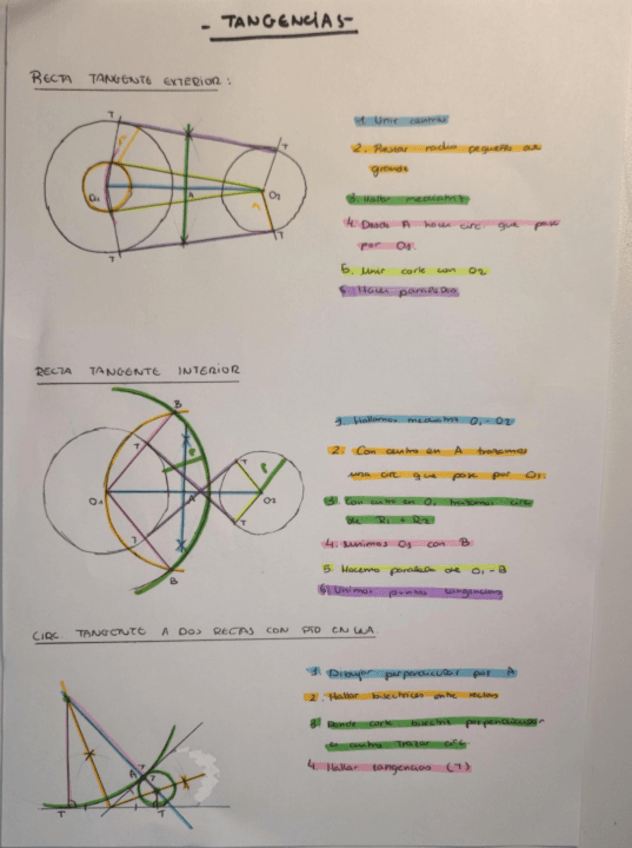 - TANGENCIAS -
RECTA TANGENTE EXTERIOR:
1. Unir centros
2. Restar radio pequeño al
grande
3. Hallar mediatriz
4. Desde A hacer circ. que pase
por O1.
5. Unir corte con O2
6. Hacer paralelas
T
T
r
O1
A
O2
r
T
T
RECTA TANGENTE INTERIOR
1. Hallamos mediatriz O1-O2
2. Con centro en A trazamos
una circ que pase por O1.
3. Con centro en O1 trazamos circ
de R1 + R2
4. Unimos O1 con B
5. Hacemo paralela de O1-B
6. Unimos puntos tangencias
B
T
T
R
R
O1
A
O2
T
T
B
CIRC. TANGENTE A DOS RECTAS CON PTO EN UNA.
1. Dibujar perpendicular por A
2. Hallar bisectrices entre rectas
3. Donde corte bisectriz perpendicular
es centro trazar circ
4. Hallar tangencias (T)
A
T
T
T